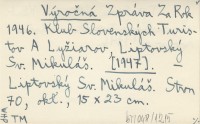 Výročná Zpráva Za Rok
1946. Klub Slovenských Turis-
tov A Lyžiarov, Liptovský
Sv. Mikuláš. [1947].
Liptovský Sv. Mikuláš. Stron
70, okł., 15 x 23 cm.
TM